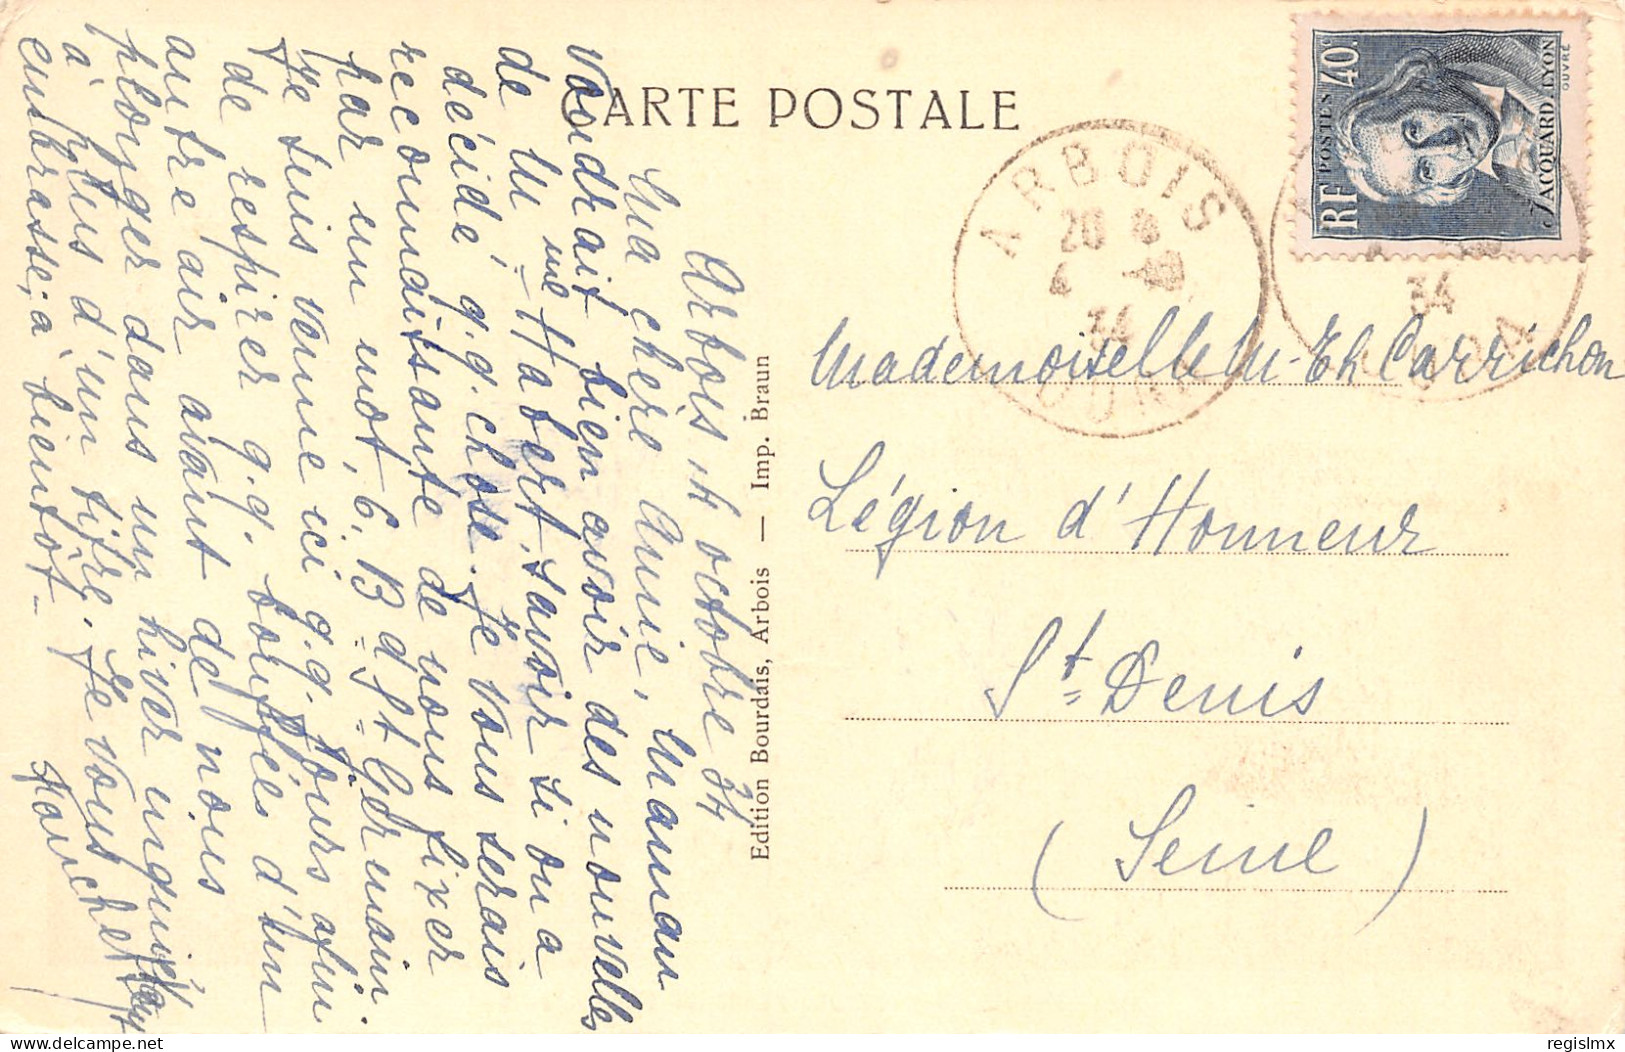 CARTE POSTALE
Arbois 4 octobre 34
Ma chère Annie, Maman
voudrait bien avoir des nouvelles
de M me Habert. savoir si on a
décidé q.q. chose. Je vous serais
reconnaissante de nous fixer
par un mot, 6, B d St Germain.
Je suis venue ici q.q. jours afin
de respirer q.q. bouffées d'un
autre air avant de nous
plonger dans un hiver inquiet
à plus d'un titre. Je vous
embrasse; à bientôt.
Edition Bourdais, Arbois — Imp. Braun
RF POSTES 40c
JACQUARD. LYON
OUVRÉ
ARBOIS
20
4
34
JURA
34
Mademoiselle M-Th Carrichon
Légion d'Honneur
St Denis
(Seine)
www.delcampe.net
regislmx